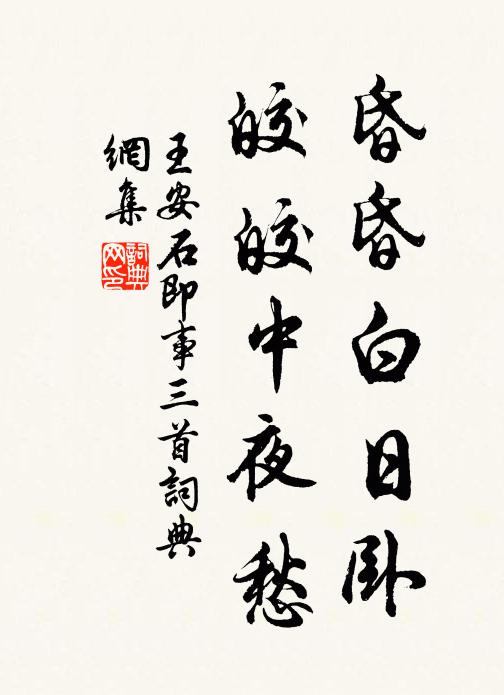 昏昏白日卧
皎皎中夜愁
王安石即事三首詞典
網集
詞典
网印